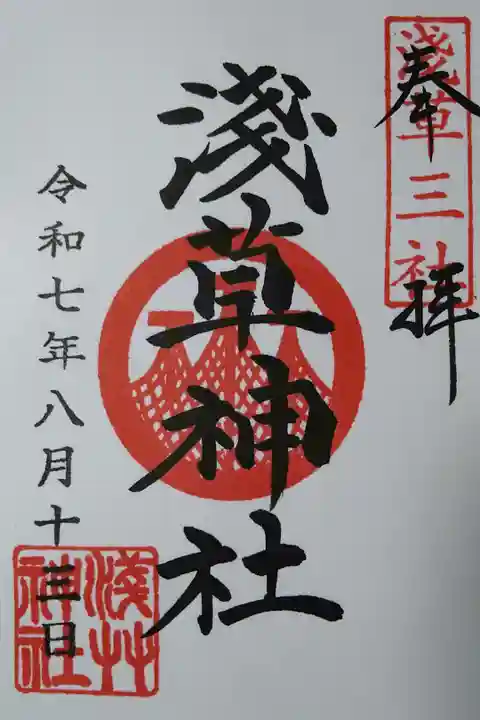 奉拝
淺草三社
淺草神社
令和七年八月十三日
淺草神社